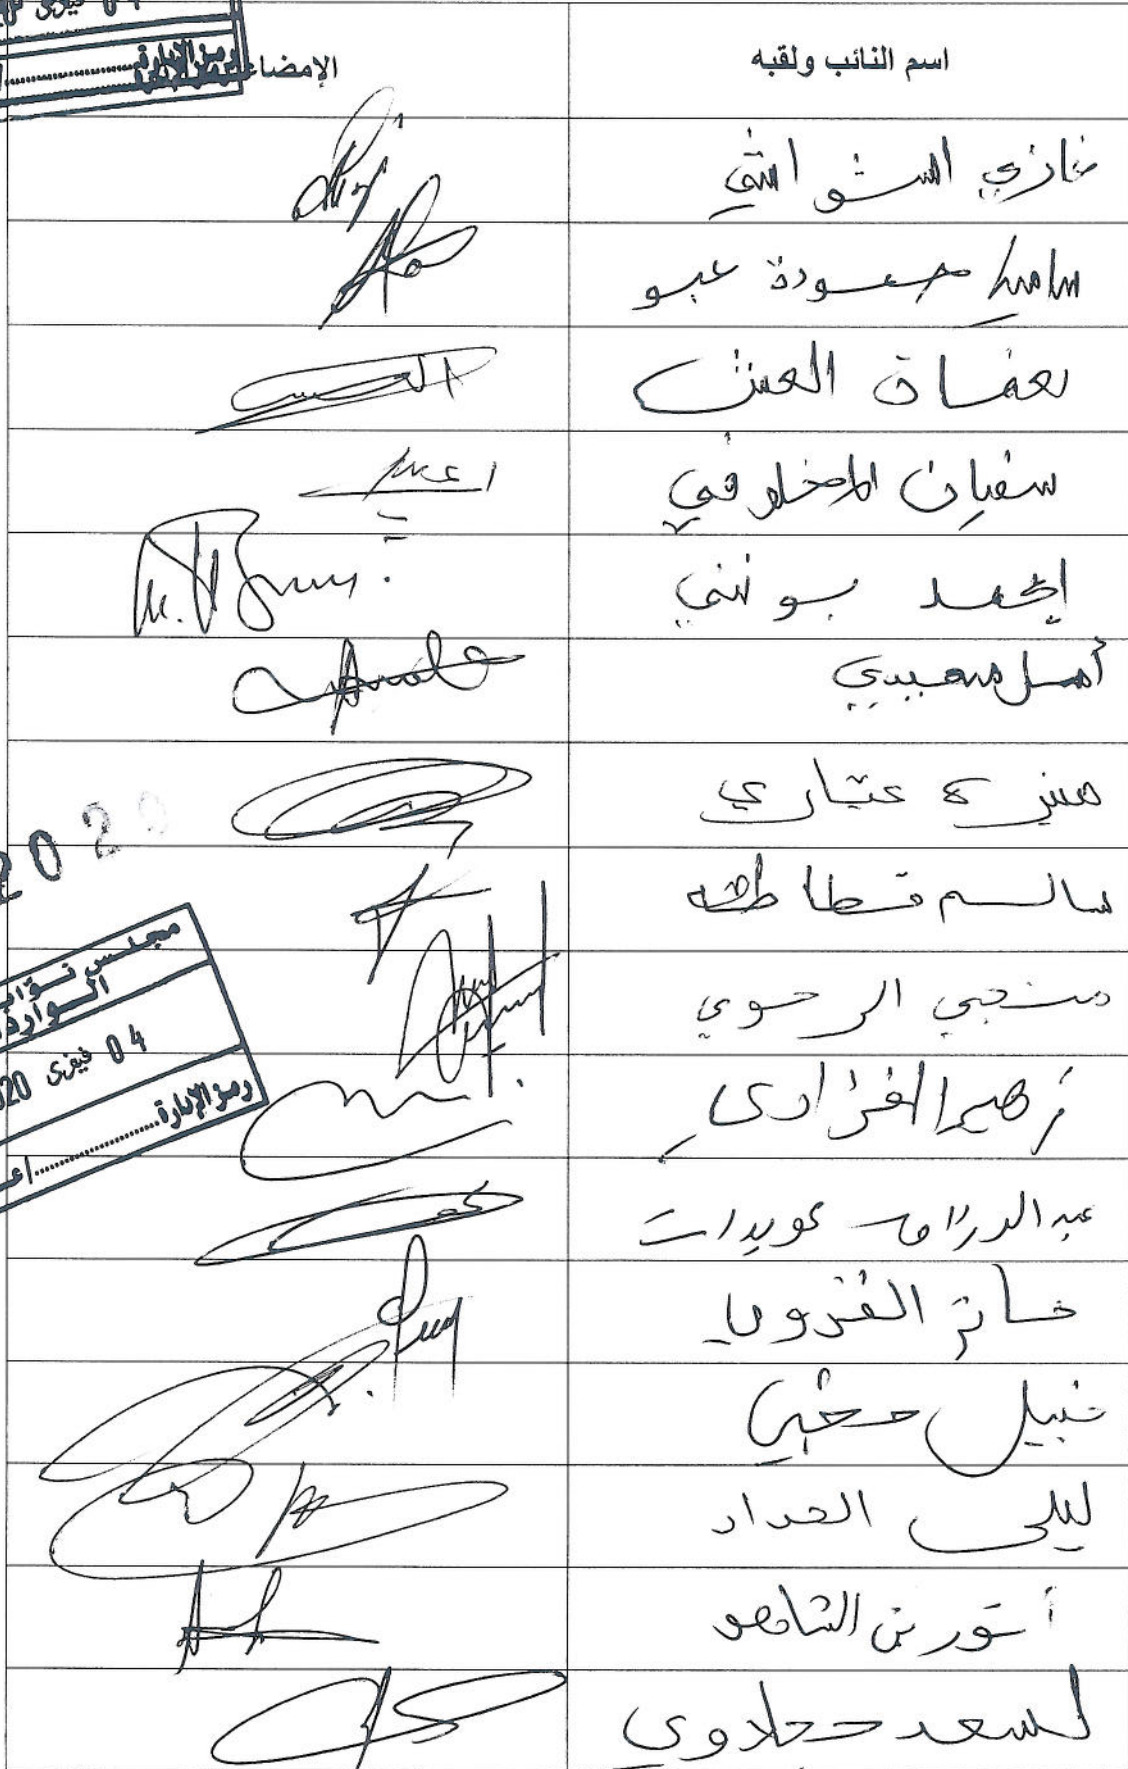 اسم النائب ولقبه
الإمضاء
رمز الإدارة
غازي الشواشي
سامية حمودة عبو
نعمان العش
سفيان المخلوفي
امحمد بوننني
أمل سعيدي
منيرة عياري
سالم قطاطه
منجي الرحوي
زهير المغزاوي
عبد الرزاق عويدات
خاتم القروي
نبيل حجي
ليلى الحداد
أنور بن الشاهد
لسعد حجلاوي
202
مجلس نواب
الوارد
04 فيفري 020
رمز الإدارة